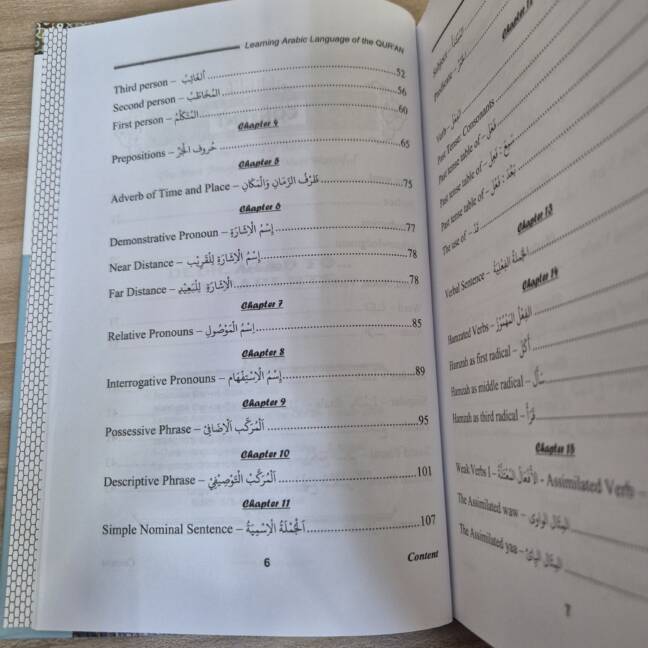 Learning Arabic Language of the QUR'AN
Third person – اَلْغَائِبُ ........ 52
Second person – اَلْمُخَاطَبُ ........ 56
First person – اَلْمُتَكَلِّمُ ........ 60
Chapter 4
Prepositions – حُرُوف الْجَرِّ ........ 65
Chapter 5
Adverb of Time and Place – ظَرْفُ الزَّمَانِ وَالْمَكَانِ ........ 75
Chapter 6
Demonstrative Pronoun – اِسْمُ الْاِشَارَةِ ........ 77
Near Distance – اِسْمُ الْاِشَارَةِ لِلْقَرِيْبِ ........ 78
Far Distance – الْاِشَارَةِ لِلْبَعِيْدِ ........ 78
Chapter 7
Relative Pronouns – اِسْمُ الْمَوْصُولِ ........ 85
Chapter 8
Interrogative Pronouns – اِسْمُ الْاِسْتِفْهَام ........ 89
Chapter 9
Possessive Phrase – اَلْمُرَكَّبُ الْاِضَافِيُّ ........ 95
Chapter 10
Descriptive Phrase – اَلْمُرَكَّبُ التَّوْصِيْفِيُّ ........ 101
Chapter 11
Simple Nominal Sentence – اَلْجُمْلَةُ الْاِسْمِيَّةُ ........ 107
6
Content
Subject –
Predicate –
Verb –
Past Tense: Consonants
Past tense table of – فَعَلَ
Past tense table of –
Past tense table of –
The use of – قَدْ
Chapter 13
Verbal Sentence – اَلْجُمْلَةُ الْفِعْلِيَّةُ
Chapter 14
Hamzated Verbs – اَلْفِعْلُ الْمَهْمُوْزُ
Hamzah as first radical – أَكَلَ
Hamzah as middle radical – سَأَلَ
Hamzah as third radical – قَرَأَ
Chapter 15
Weak Verbs I – اَلْأَفْعَالُ الْمُعْتَلَّةُ - Assimilated Verb –
The Assimilated waw –
The Assimilated yaa –
7